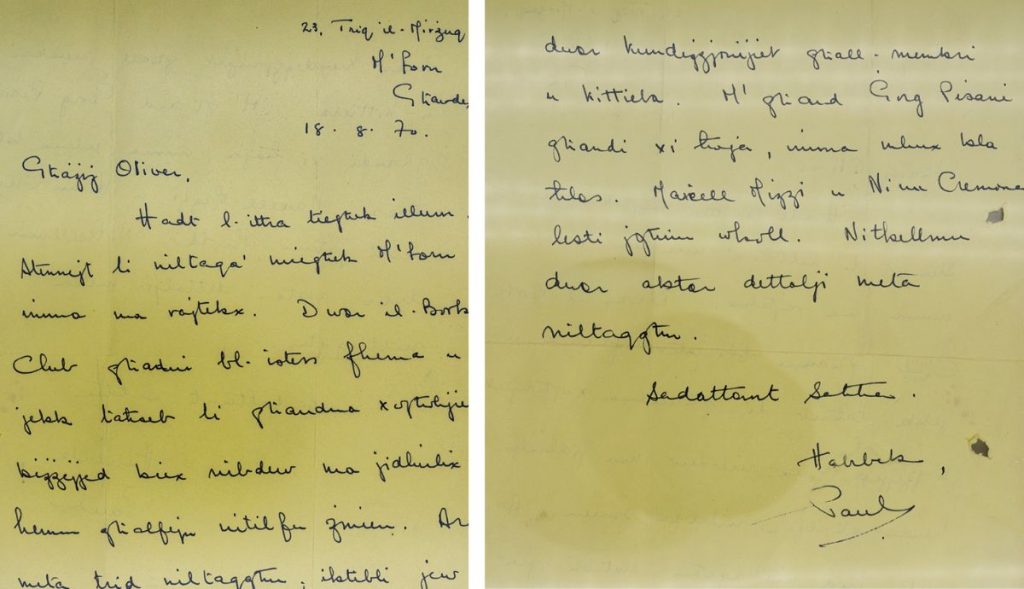 23, Triq il-Mirżuq
M'Forn
Għawdex
18. 8. 70.
Għażiż Oliver,
Ħadt l-ittra tiegħek illum.
Stennejt li niltaqa' miegħek M'Forn
imma ma rajtekx. Dwar il-Book
Club għadni bl-istess fhema u
jekk taħseb li għandna
biżżejjed biex nibdew ma jidhirlix
hemm għalfejn nitilfu żmien. Ar
meta trid niltaqgħu, iktibli jew
dwar kundizzjonijiet għall-membri
u kittieba. M'għand Ġorġ Pisani
għandi xi ħaġa, imma mhux bla
tilas. Marċell Mizzi u Ninu Cremona
lesti jgħinu wkoll. Nitkellmu
dwar aktar dettalji meta
niltaqgħu.
Sadattant Saħħa.
Ħabibek,
Paul